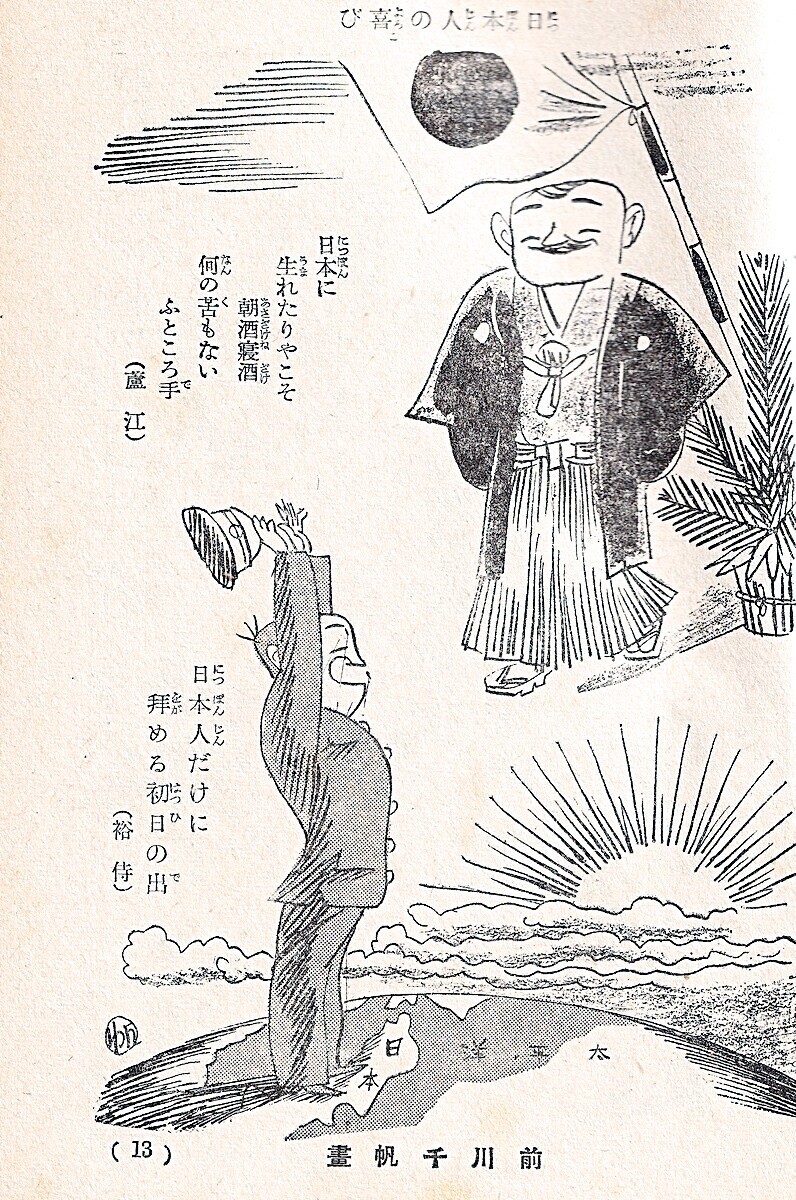 日本人の喜び
日本に
生れたりやこそ
朝酒寢酒
何の苦もない
ふところ手
(蘆江)
日本人だけに
拜める初日の出
(裕侍)
日本
太平洋
前川千帆畫
(13)